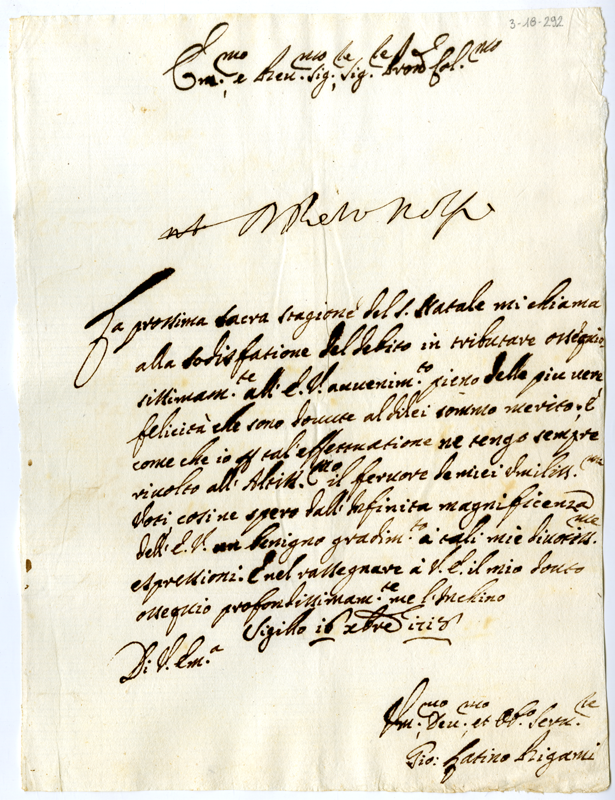 3-18-292
Em.mo e Reu.mo Sig.re Sig.re Pron Col.mo
La prossima sacra stagione del S. Natale mi chiama
alla sodisfatione del debito in tributare ossequio
sissimam.te all' E. V. auuenim.to pieno delle piu vere
felicità che sono douute al dilei sommo merito. E
come che io p tal effettuatione ne tengo sempre
riuolto all' Altiss.mo il feruore de miei humiliss.mi
Voti, cosi ne spero dall' Infinita magnificenza
dell' E. V. un benigno gradim.to à tali mie diuotiss.me
espressioni. E nel rassegnare à V. E. il mio douuto
ossequio profondissimam.te me l' Inchino
Sigillo 16 Xbre 1718
Di V. Em.a
Hum.mo Deu.mo et Obb.o Seru.re
Gio: Latino Rigami